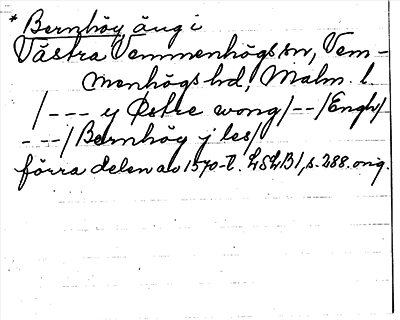 * Bernhöy, äng i
Västra Vemmenhögs sn, Vem-
menhögs hd, Malm. l.
/--- y Østre wong/--/Engh/
---/Bernhöy j les/
förra delen av 1570-t. LSLB1, s. 288. orig.